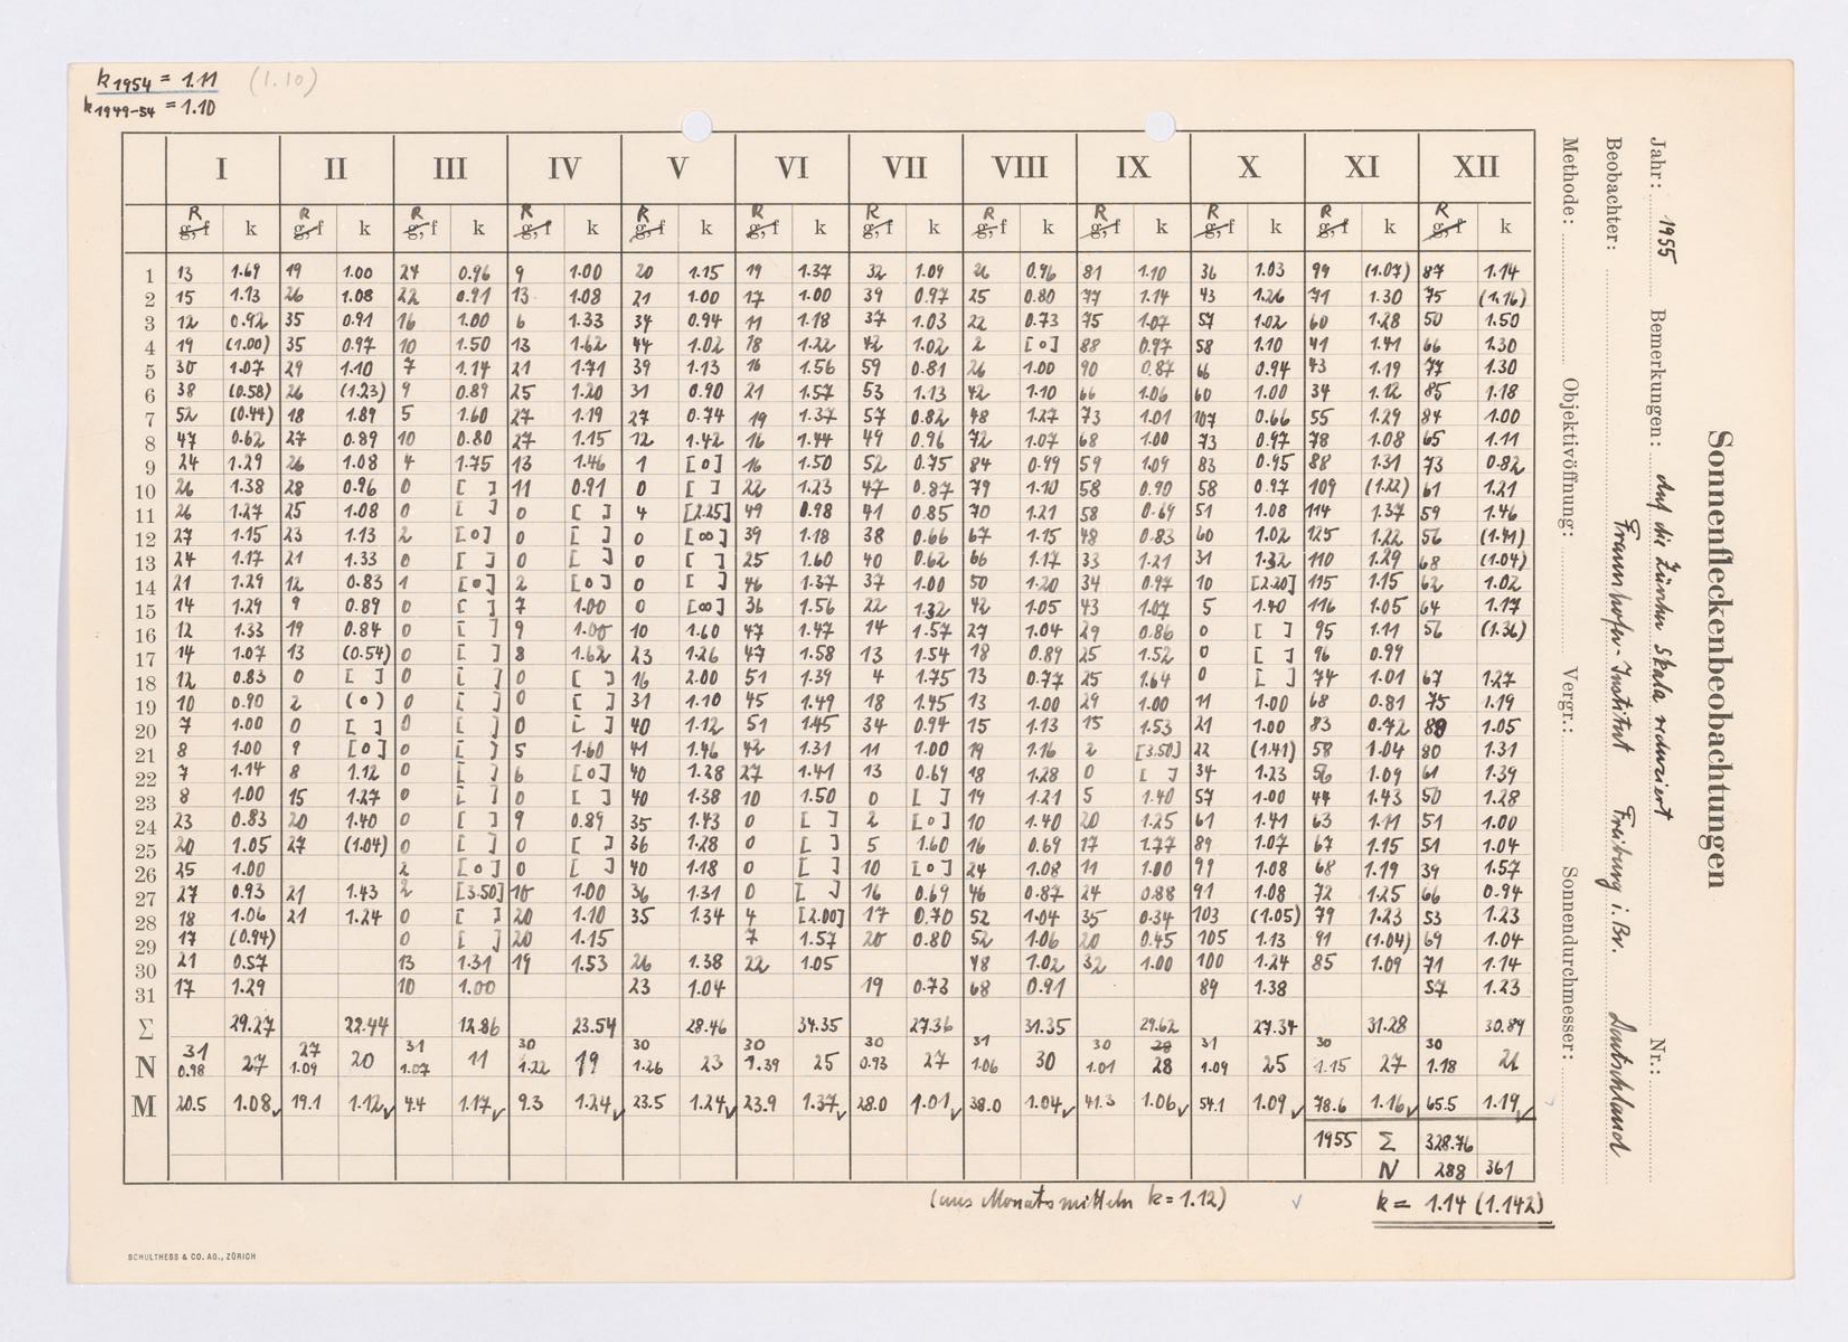 k1954 = 1.11 (1.10)
k1949-54 = 1.10
Sonnenfleckenbeobachtungen
Jahr: 1955 Bemerkungen: auf die Zürcher Skala reduziert Nr.:
Beobachter: Fraunhofer-Institut Freiburg i. Br. Deutschland
Methode: Objektivöffnung: Vergr.: Sonnendurchmesser:
I II III IV V VI VII VIII IX X XI XII
R g, f k R g, f k R g, f k R g, f k R g, f k R g, f k R g, f k R g, f k R g, f k R g, f k R g, f k R g, f k
1 13 1.69 19 1.00 24 0.96 9 1.00 20 1.15 19 1.37 32 1.09 26 0.96 81 1.10 36 1.03 99 (1.07) 87 1.14
2 15 1.13 26 1.08 22 0.91 13 1.08 21 1.00 17 1.00 39 0.97 25 0.80 77 1.14 43 1.26 71 1.30 75 (1.16)
3 12 0.92 35 0.91 16 1.00 6 1.33 34 0.94 11 1.18 37 1.03 22 0.73 75 1.07 57 1.02 60 1.28 50 1.50
4 19 (1.00) 35 0.97 10 1.50 13 1.62 44 1.02 18 1.22 42 1.02 2 [0] 88 0.97 58 1.10 41 1.41 66 1.30
5 30 1.07 29 1.10 7 1.14 21 1.71 39 1.13 16 1.56 59 0.81 26 1.00 90 0.87 66 0.94 43 1.19 77 1.30
6 38 (0.58) 26 (1.23) 9 0.89 25 1.20 31 0.90 21 1.57 53 1.13 42 1.10 66 1.06 60 1.00 34 1.12 85 1.18
7 52 (0.44) 18 1.89 5 1.60 27 1.19 27 0.74 19 1.37 57 0.82 48 1.27 73 1.01 107 0.66 55 1.29 84 1.00
8 47 0.62 27 0.89 10 0.80 27 1.15 12 1.42 16 1.44 49 0.96 72 1.07 68 1.00 73 0.97 78 1.08 65 1.11
9 24 1.29 26 1.08 4 1.75 13 1.46 1 [0] 16 1.50 52 0.75 84 0.99 59 1.09 83 0.95 88 1.31 73 0.82
10 26 1.38 28 0.96 0 [ ] 11 0.91 0 [ ] 22 1.23 47 0.87 79 1.10 58 0.90 58 0.97 109 (1.22) 61 1.21
11 26 1.27 25 1.08 0 [ ] 0 [ ] 4 [2.25] 49 0.98 41 0.85 70 1.21 58 0.69 51 1.08 114 1.37 59 1.46
12 27 1.15 23 1.13 2 [0] 0 [ ] 0 [∞] 39 1.18 38 0.66 67 1.15 48 0.83 60 1.02 125 1.22 56 (1.41)
13 24 1.17 21 1.33 0 [ ] 0 [ ] 0 [ ] 25 1.60 40 0.62 66 1.17 33 1.21 31 1.32 110 1.29 68 (1.04)
14 21 1.29 12 0.83 1 [0] 2 [0] 0 [ ] 46 1.37 37 1.00 50 1.20 34 0.97 10 [2.20] 115 1.15 62 1.02
15 14 1.29 9 0.89 0 [ ] 7 1.00 0 [∞] 36 1.56 22 1.32 42 1.05 43 1.07 5 1.40 116 1.05 64 1.17
16 12 1.33 19 0.84 0 [ ] 9 1.00 10 1.60 47 1.47 14 1.57 27 1.04 29 0.86 0 [ ] 95 1.11 56 (1.36)
17 14 1.07 13 (0.54) 0 [ ] 8 1.62 23 1.26 47 1.58 13 1.54 18 0.89 25 1.52 0 [ ] 96 0.99
18 12 0.83 0 [ ] 0 [ ] 0 [ ] 16 2.00 51 1.39 4 1.75 13 0.77 25 1.64 0 [ ] 74 1.01 67 1.27
19 10 0.90 2 (0) 0 [ ] 0 [ ] 31 1.10 45 1.49 18 1.45 13 1.00 29 1.00 11 1.00 68 0.81 75 1.19
20 7 1.00 0 [ ] 0 [ ] 0 [ ] 40 1.12 51 1.45 34 0.94 15 1.13 15 1.53 21 1.00 83 0.72 80 1.05
21 8 1.00 9 [0] 0 [ ] 5 1.60 41 1.46 42 1.31 11 1.00 19 1.16 2 [3.50] 22 (1.41) 58 1.04 80 1.31
22 7 1.14 8 1.12 0 [ ] 6 [0] 40 1.28 27 1.41 13 0.69 18 1.28 0 [ ] 34 1.23 56 1.09 61 1.39
23 8 1.00 15 1.27 0 [ ] 0 [ ] 40 1.38 10 1.50 0 [ ] 19 1.21 5 1.40 57 1.00 44 1.43 50 1.28
24 23 0.83 20 1.40 0 [ ] 9 0.89 35 1.43 0 [ ] 2 [0] 10 1.40 20 1.25 61 1.41 63 1.11 51 1.00
25 20 1.05 27 (1.04) 0 [ ] 0 [ ] 36 1.28 0 [ ] 5 1.60 16 0.69 17 1.77 89 1.07 67 1.15 51 1.04
26 25 1.00 2 [0] 0 [ ] 40 1.18 0 [ ] 10 [0] 24 1.08 11 1.00 99 1.08 68 1.19 39 1.57
27 27 0.93 21 1.43 2 [3.50] 10 1.00 36 1.31 0 [ ] 16 0.69 46 0.87 24 0.88 91 1.08 72 1.25 66 0.94
28 18 1.06 21 1.24 0 [ ] 20 1.10 35 1.34 4 [2.00] 17 0.70 52 1.04 35 0.34 103 (1.05) 79 1.23 53 1.23
29 17 (0.94) 0 [ ] 20 1.15 7 1.57 20 0.80 52 1.06 20 0.45 105 1.13 91 (1.04) 69 1.04
30 21 0.57 13 1.31 19 1.53 26 1.38 22 1.05 48 1.02 32 1.00 100 1.24 85 1.09 71 1.14
31 17 1.29 10 1.00 23 1.04 19 0.73 68 0.91 89 1.38 57 1.23
Σ 29.27 22.44 12.86 23.54 28.46 34.35 27.36 31.35 29.62 27.34 31.28 30.89
31 27 31 30 30 30 30 31 30 28 31 30 30
N 0.98 27 1.09 20 1.07 11 1.22 19 1.26 23 1.39 25 0.93 27 1.06 30 1.01 28 1.09 25 1.15 27 1.18 26
M 20.5 1.08✓ 19.1 1.12✓ 4.4 1.17✓ 9.3 1.24✓ 23.5 1.24✓ 23.9 1.37✓ 28.0 1.01✓ 38.0 1.04✓ 41.3 1.06✓ 54.1 1.09✓ 78.6 1.16✓ 65.5 1.19✓
1955 Σ 328.76
N 288 361
(aus Monatsmitteln k = 1.12) ✓ k = 1.14 (1.142)
SCHULTHESS & CO. AG., ZÜRICH